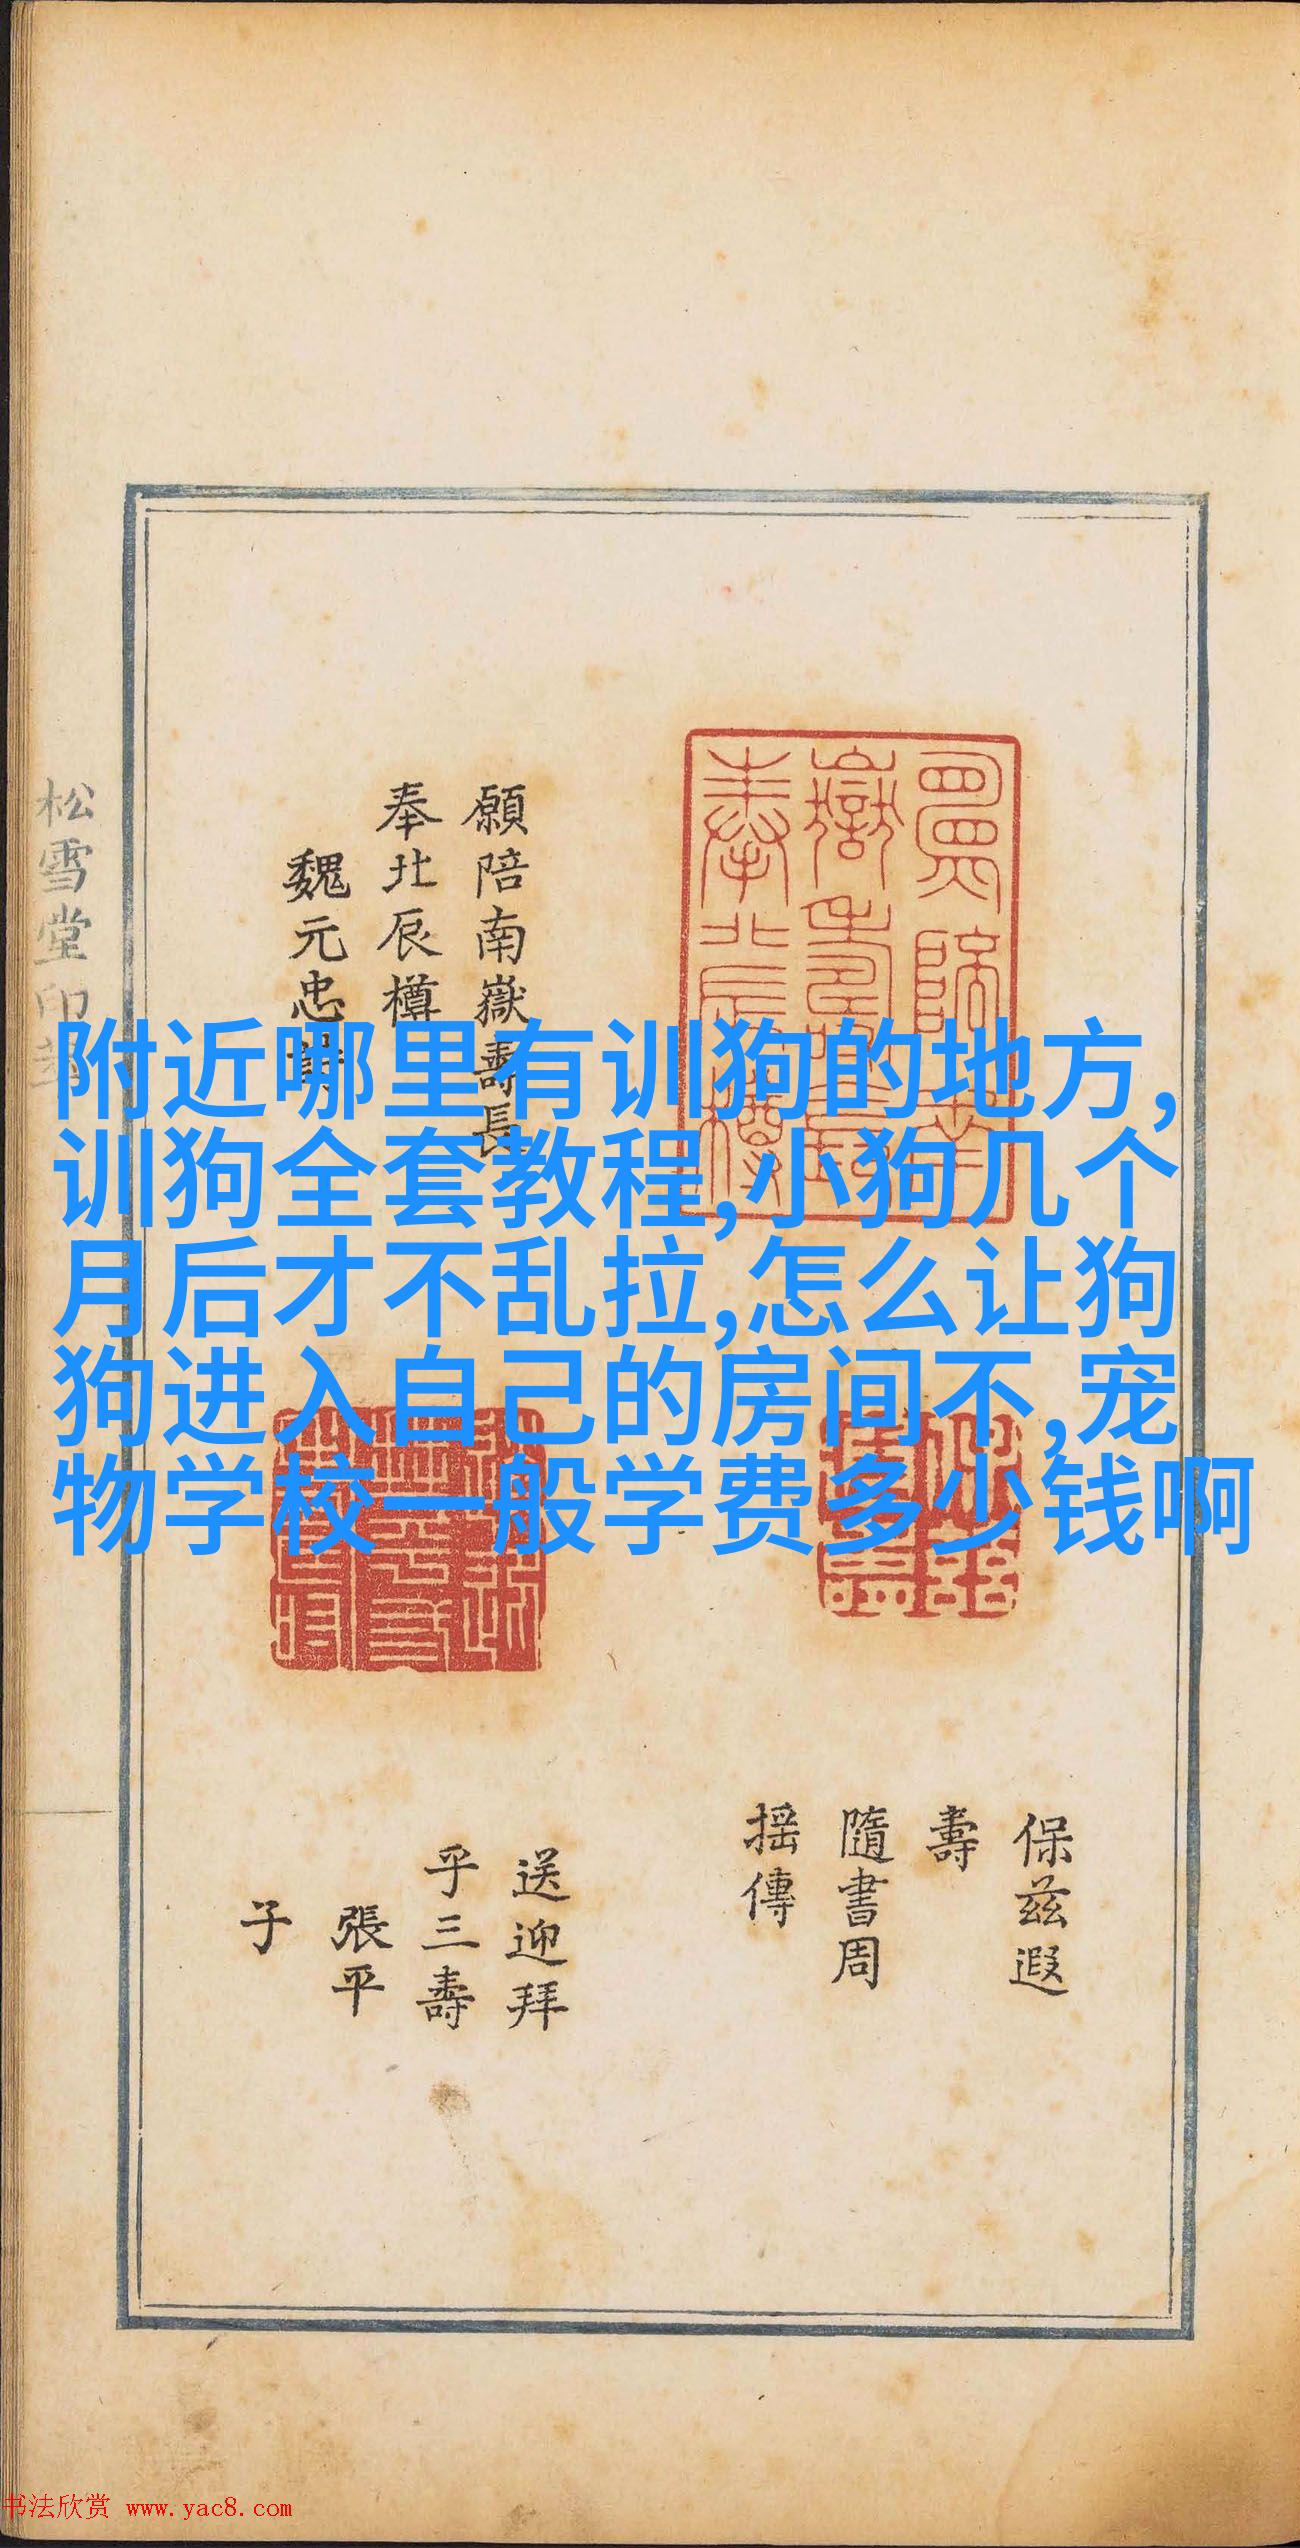 附近哪里有训狗的地方,
训狗全套教程,小狗几个
月后才不乱拉,怎么让狗
狗进入自己的房间不,宠
物学校一般学费多少钱啊
願陪南嶽壽長
奉北辰樽
魏元忠詩
松雪堂印
保茲遐
壽
隨書周
搖傳
送迎拜
乎三壽
張平
子
书法欣赏 www.yac8.com